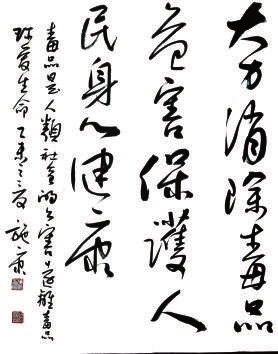 大力消除毒品
危害保護人
民身心健康
毒品是人類社會的公害遠離毒品
珍愛生命乙未之夏施康